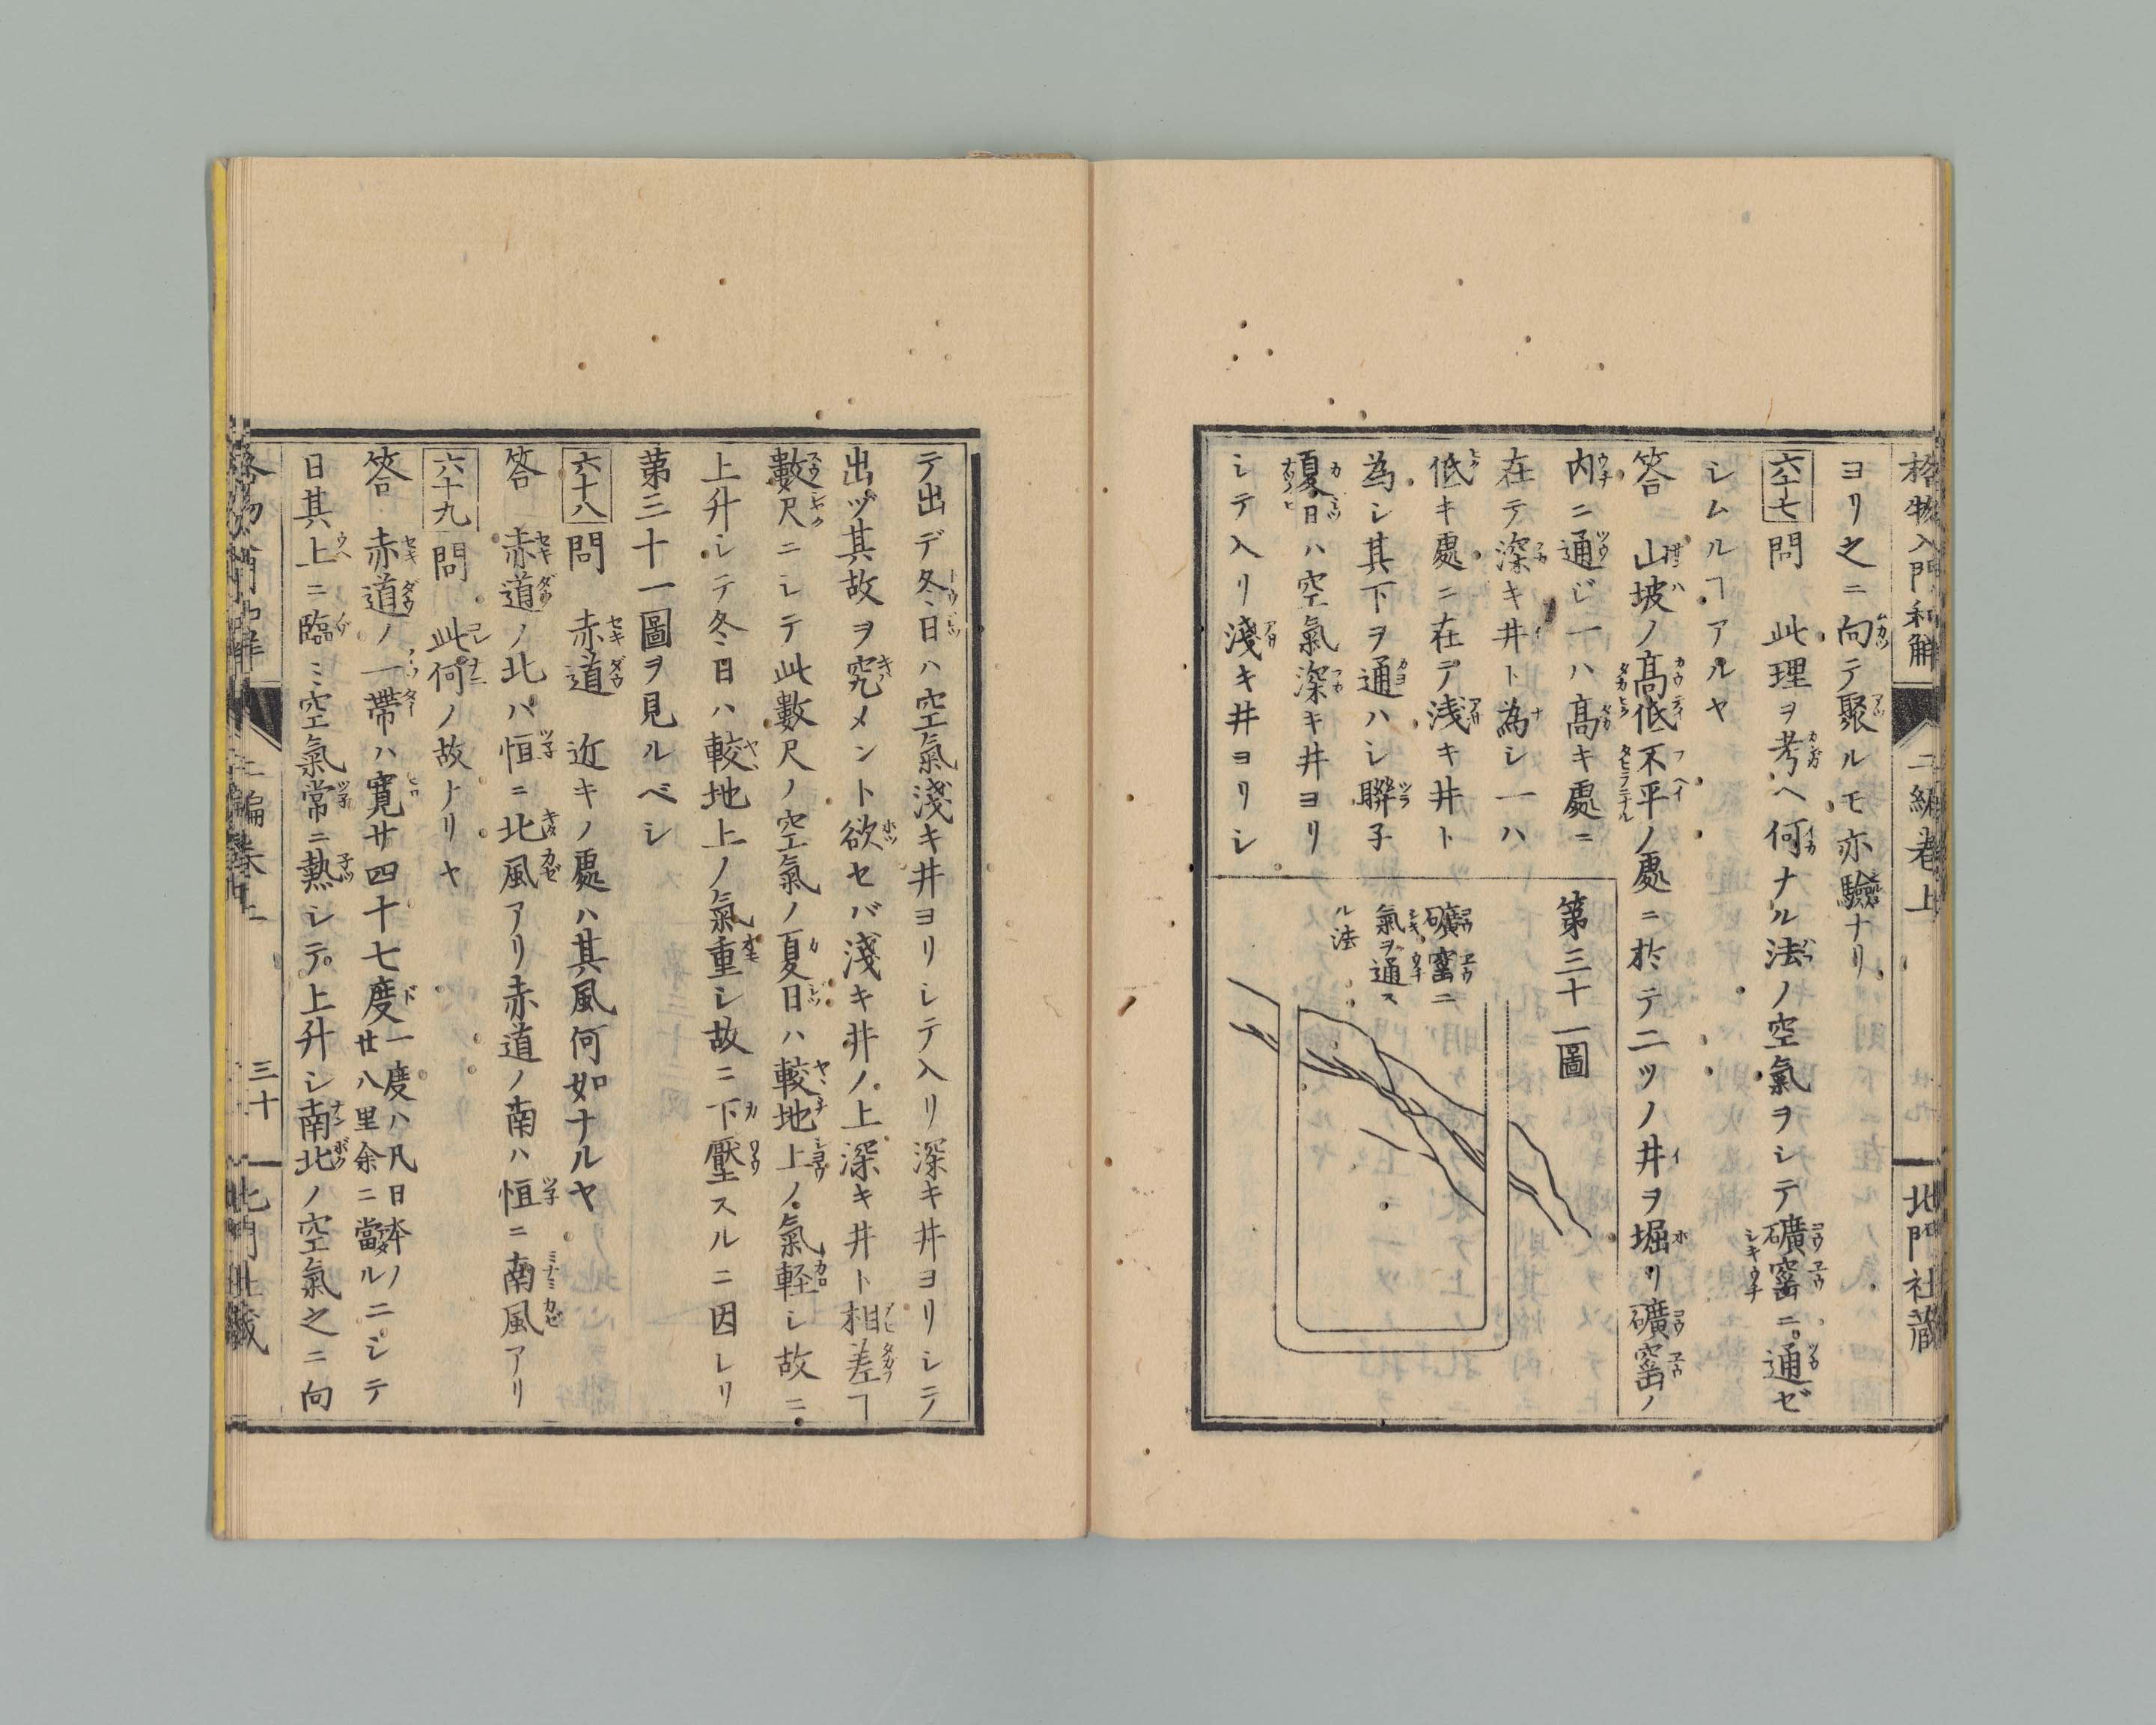 格物入門和解 二編卷上 北門社藏
ヨリ之ニ向テ聚ルモ亦驗ナリ
六十七 問 此理ヲ考ヘ何ナル法ノ空氣ヲシテ礦窑ニ通ゼ
シムルヿアルヤ
答 山坡ノ高低不平ノ處ニ於テ二ツノ井ヲ堀リ礦窑ノ
内ニ通ジ一ハ高キ處ニ
在テ深キ井ト為シ一ハ
低キ處ニ在テ浅キ井ト
為シ其下ヲ通ハシ聯子
夏日ハ空氣深キ井ヨリ
シテ入リ淺キ井ヨリシ
第三十一圖
礦窑ニ
氣ヲ通ス
ル法
テ出デ冬日ハ空氣淺キ井ヨリシテ入リ深キ井ヨリシテ
出ヅ其故ヲ究メント欲セバ淺キ井ノ上深キ井ト相差フヿ
數尺ニシテ此數尺ノ空氣ノ夏日ハ較地上ノ氣軽シ故ニ
上升シテ冬日ハ較地上ノ氣重シ故ニ下壓スルニ因レリ
第三十一圖ヲ見ルベシ
六十八 問 赤道 近キノ處ハ其風何如ナルヤ
答 赤道ノ北ハ恒ニ北風アリ赤道ノ南ハ恒ニ南風アリ
六十九 問 此何ノ故ナリヤ
答 赤道ノ一帶ハ寛サ四十七度一度ハ凡日本ノ廿八里余ニ當ルニシテ
日其上ニ臨ミ空氣常ニ熱シテ上升シ南北ノ空氣之ニ向
格物入門和解 二編卷上 三十 北門社藏